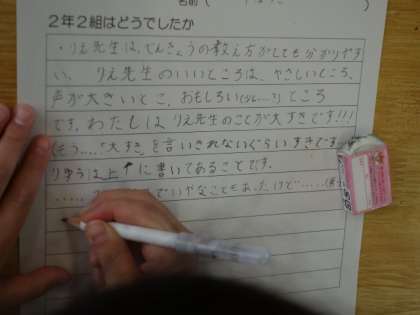 名前(
2年2組はどうでしたか
・りえ先生は、べんきょうの教え方がとても分かりやす
い。 りえ先生のいいところは、やさしいところ、
声が大きいとこ、おもしろい(少し…?)ところ
です。わたしは、りえ先生のことが大すきです!!!
(そう……「大すき」を言いきれないぐらいすきです
りゆうは上↑に書いてあることです。
いやなこともあったけど……